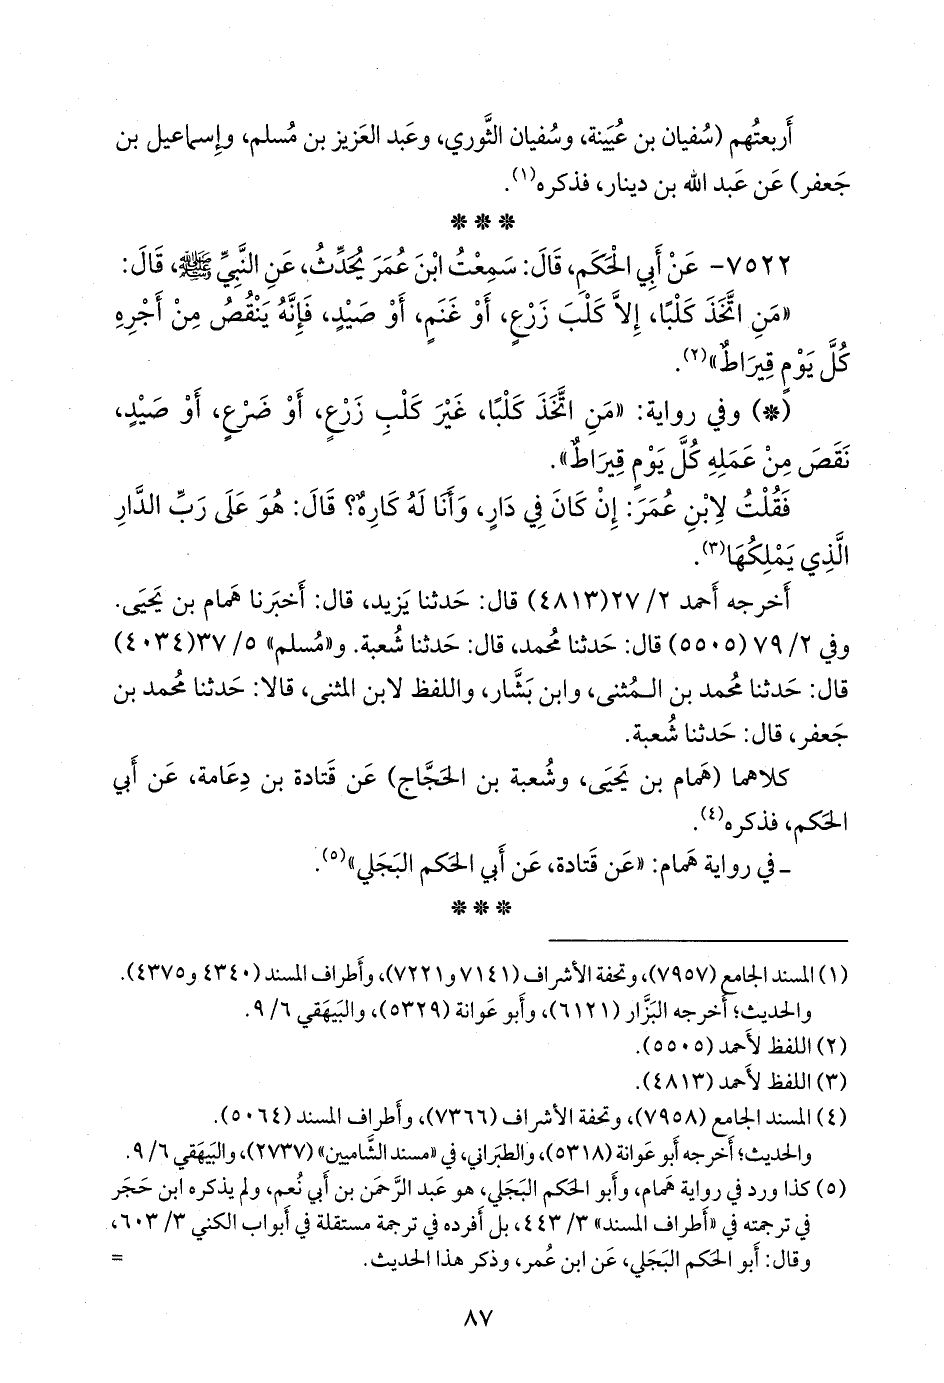 أَربعتُهم (سُفيان بن عُيَينة، وسُفيان الثَّوري، وعَبد العَزيز بن مُسلم، وإِسماعيل بن
جَعفر) عَن عَبد الله بن دينار، فذكره(١).
* * *
٧٥٢٢- عَنْ أَبِي الْحَكَمِ، قَالَ: سَمِعْتُ ابْنَ عُمَرَ يُحَدِّثُ، عَنِ النَّبِيِّ ﷺ، قَالَ:
«مَنِ اتَّخَذَ كَلْبًا، إِلاَّ كَلْبَ زَرْعٍ، أَوْ غَنَمٍ، أَوْ صَيْدٍ، فَإِنَّهُ يَنْقُصُ مِنْ أَجْرِهِ
كُلَّ يَوْمٍ قِيرَاطٌ»(٢).
(*) وفي رواية: «مَنِ اتَّخَذَ كَلْبًا، غَيْرَ كَلْبِ زَرْعٍ، أَوْ ضَرْعٍ، أَوْ صَيْدٍ،
نَقَصَ مِنْ عَمَلِهِ كُلَّ يَوْمٍ قِيرَاطٌ».
فَقُلْتُ لِابْنِ عُمَرَ: إِنْ كَانَ فِي دَارٍ، وَأَنَا لَهُ كَارِهٌ؟ قَالَ: هُوَ عَلَى رَبِّ الدَّارِ
الَّذِي يَمْلِكُهَا(٣).
أَخرجه أَحمد ٢/ ٢٧(٤٨١٣) قال: حَدثنا يَزيد، قال: أَخبَرنا هَمام بن يَحيَى.
وفي ٢/ ٧٩ (٥٥٠٥) قال: حَدثنا مُحمد، قال: حَدثنا شُعبة. و«مُسلم» ٥/ ٣٧(٤٠٣٤)
قال: حَدثنا مُحمد بن الـمُثنى، وابن بَشَّار، واللفظ لابن المثنى، قالا: حَدثنا مُحمد بن
جَعفر، قال: حَدثنا شُعبة.
كلاهما (هَمام بن يَحيَى، وشُعبة بن الحَجَّاج) عَن قَتادة بن دِعَامة، عَن أَبي
الحَكم، فذكره(٤).
ـ في رواية هَمام: «عَن قَتادة، عَن أَبي الحَكم البَجَلي»(٥).
* * *
(١) المسند الجامع (٧٩٥٧)، وتحفة الأشراف (٧١٤١ و٧٢٢١)، وأَطراف المسند (٤٣٤٠ و٤٣٧٥).
والحديث؛ أَخرجه البَزَّار (٦١٢١)، وأَبو عَوانة (٥٣٢٩)، والبَيهَقي ٦/ ٩.
(٢) اللفظ لأَحمد (٥٥٠٥).
(٣) اللفظ لأَحمد (٤٨١٣).
(٤) المسند الجامع (٧٩٥٨)، وتحفة الأشراف (٧٣٦٦)، وأَطراف المسند (٥٠٦٤).
والحديث؛ أَخرجه أَبو عَوانة (٥٣١٨)، والطبَراني، في «مسند الشَّاميين» (٢٧٣٧)، والبَيهَقي ٦/ ٩.
(٥) كذا ورد في رواية هَمام، وأَبو الحَكم البَجَلي، هو عَبد الرَّحمَن بن أَبي نُعم، ولم يذكره ابن حَجَر
في ترجمته في «أطراف المسند» ٣/ ٤٤٣، بل أَفرده في ترجمة مستقلة في أبواب الكنى ٣/ ٦٠٣،
وقال: أَبو الحَكم البَجَلي، عَن ابن عُمر، وذكر هذا الحديث. =
٨٧